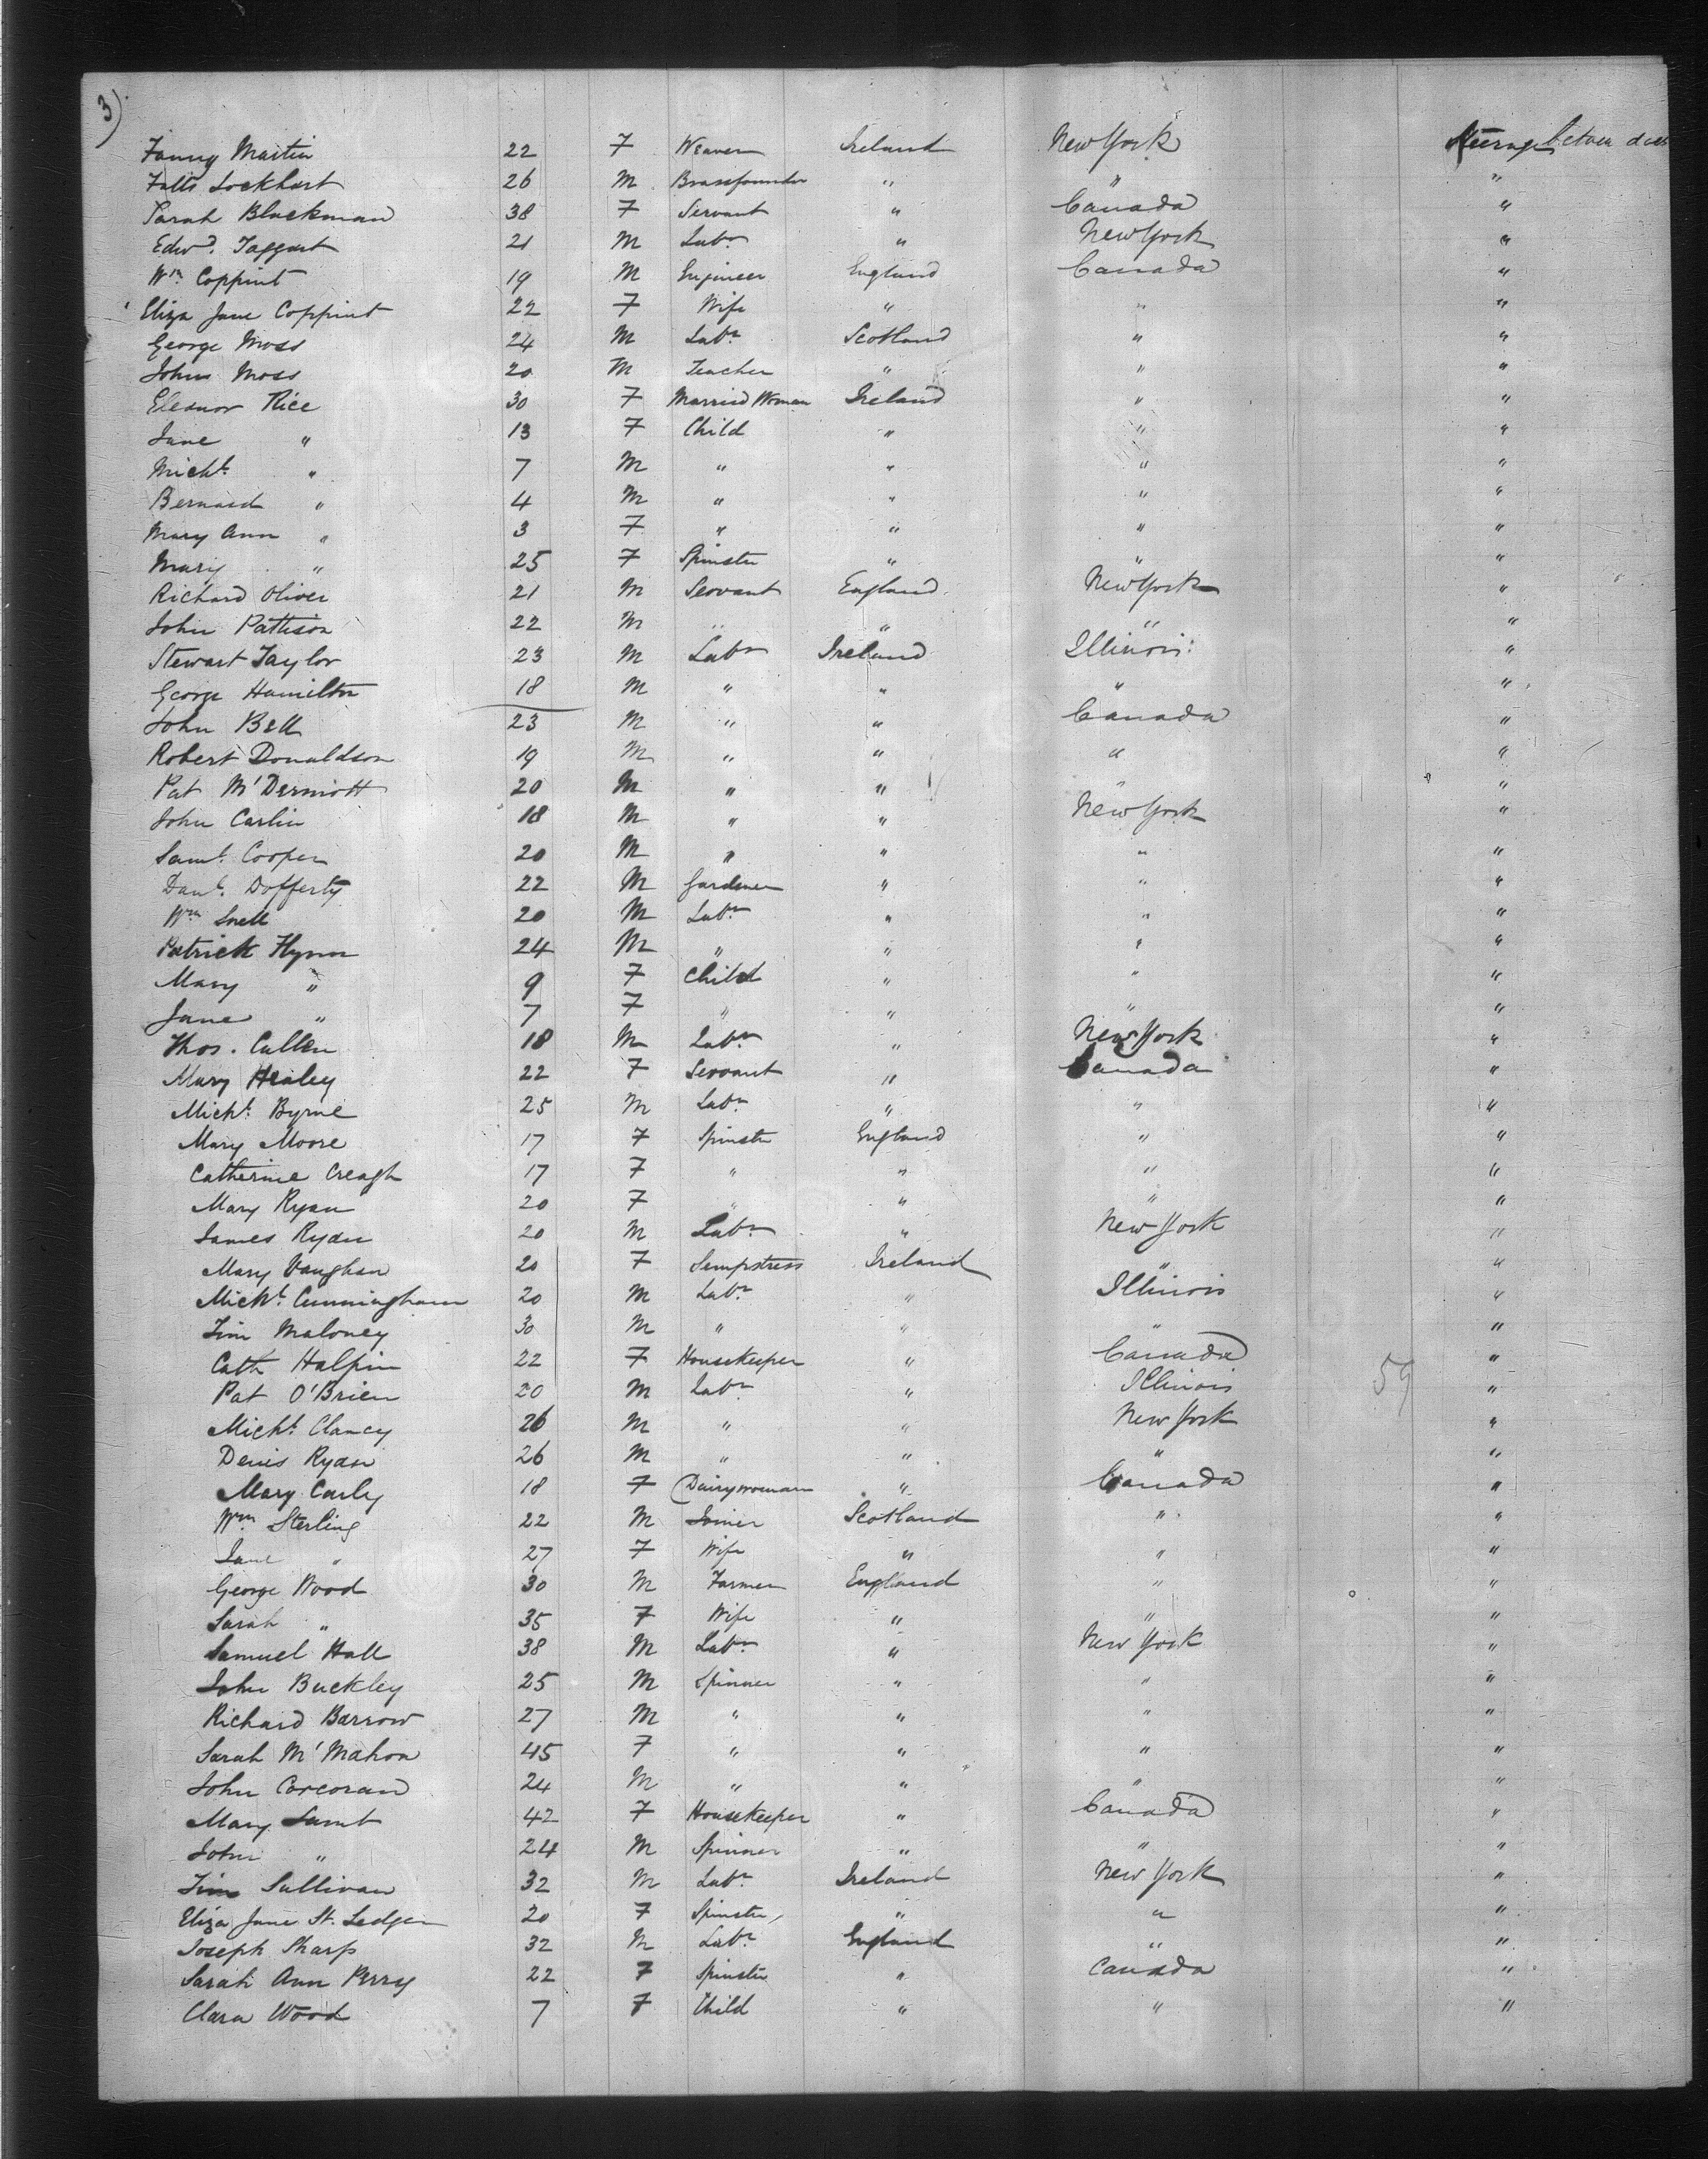 3)
Fanny Martin 22 F Weaver Ireland New York Steerage between decks
Lockhart 26 M Brassfounder " " "
Sarah Blackman 38 F Servant " Canada "
Edwd. Taggart 21 M Labr " New York "
Wm Coppint 19 M Engineer England Canada "
Eliza Jane Coppint 22 F Wife " " "
George Moss 24 M Labr Scotland " "
John Moss 20 M Teacher " " "
Eleanor Rice 30 F Married Woman Ireland " "
Jane " 13 F Child " " "
Michl. " 7 M " " " "
Bernard " 4 M " " " "
Mary Ann " 3 F " " " "
Mary " 25 F Spinster " " "
Richard Oliver 21 M Servant England New York "
John Pattison 22 M " " " "
Stewart Taylor 23 M Labr Ireland Illinois "
George Hamilton 18 M " " " "
John Bell 23 M " " Canada "
Robert Donaldson 19 M " " " "
Pat M'Dermott 20 M " " " "
John Carlin 18 M " " New York "
Saml. Cooper 20 M " " " "
Danl. Dofferty 22 M Gardener " " "
Wm Snell 20 M Labr " " "
Patrick Flynn 24 M " " " "
Mary " 9 F Child " " "
Jane " 7 F " " " "
Thos. Cullen 18 M Labr " New York "
Mary Healey 22 F Servant " Canada "
Michl. Byrne 25 M Labr " " "
Mary Moore 17 F Spinster England " "
Catherine Creagh 17 F " " " "
Mary Ryan 20 F " " " "
James Ryan 20 M Labr " New York "
Mary Vaughan 20 F Sempstress Ireland " "
Michl. Cunningham 20 M Labr " Illinois "
Tim Maloney 30 M " " " "
Cath Halpin 22 F Housekeeper " Canada "
Pat O'Brien 20 M Labr " Illinois 59 "
Michl. Clancy 26 M " " New York "
Denis Ryan 26 M " " " "
Mary Carly 18 F Dairywoman " Canada "
Wm Sterling 22 M Joiner Scotland " "
Jane " 27 F Wife " " "
George Wood 30 M Farmer England " "
Sarah " 35 F Wife " " "
Samuel Hall 38 M Labr " New York "
John Buckley 25 M Spinner " " "
Richard Barrow 27 M " " " "
Sarah M'Mahon 45 F " " " "
John Corcoran 24 M " " " "
Mary Lamb 42 F Housekeeper " Canada "
John " 24 M Spinner " " "
Tim Sullivan 32 M Labr Ireland New York "
Eliza Jane St. Ledger 20 F Spinster " " "
Joseph Sharp 32 M Labr England " "
Sarah Ann Perry 22 F Spinster " Canada "
Clara Wood 7 F Child " " "